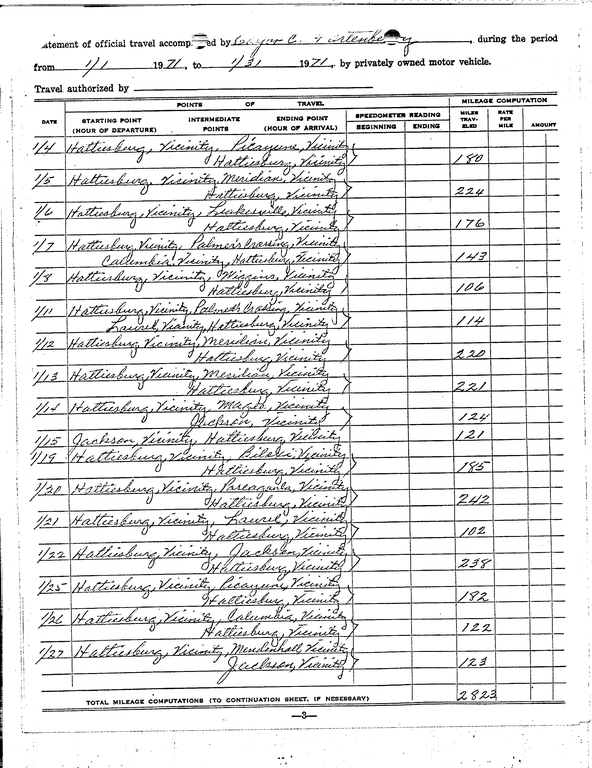 atement of official travel accomp ed by C. , during the period
from 1/1 1971, to 1/31 1971, by privately owned motor vehicle.
Travel authorized by
POINTS OF TRAVEL MILEAGE COMPUTATION
DATE STARTING POINT (HOUR OF DEPARTURE) INTERMEDIATE POINTS ENDING POINT (HOUR OF ARRIVAL) SPEEDOMETER READING BEGINNING ENDING MILES TRAV-ELED RATE PER MILE AMOUNT
1/4 Hattiesburg, Vicinity, Picayune, Vicinity
Hattiesburg, Vicinity 180
1/5 Hattiesburg, Vicinity, Meridian, Vicinity
Hattiesburg, Vicinity 224
1/6 Hattiesburg, Vicinity, Leakesville, Vicinity
Hattiesburg, Vicinity 176
1/7 Hattiesburg, Vicinity, Palmers Crossing, Vicinity
Columbia, Vicinity, Hattiesburg, Vicinity 143
1/8 Hattiesburg, Vicinity, Wiggins, Vicinity
Hattiesburg, Vicinity 106
1/11 Hattiesburg, Vicinity, Palmers Crossing, Vicinity
Laurel, Vicinity, Hattiesburg, Vicinity 114
1/12 Hattiesburg, Vicinity, Meridian, Vicinity
Hattiesburg, Vicinity 220
1/13 Hattiesburg, Vicinity, Meridian, Vicinity
Hattiesburg, Vicinity 221
1/14 Hattiesburg, Vicinity, Magee, Vicinity
Jackson, Vicinity 124
1/15 Jackson, Vicinity, Hattiesburg, Vicinity 121
1/19 Hattiesburg, Vicinity, Biloxi, Vicinity
Hattiesburg, Vicinity 185
1/20 Hattiesburg, Vicinity, Pascagoula, Vicinity
Hattiesburg, Vicinity 242
1/21 Hattiesburg, Vicinity, Laurel, Vicinity
Hattiesburg, Vicinity 102
1/22 Hattiesburg, Vicinity, Jackson, Vicinity
Hattiesburg, Vicinity 238
1/25 Hattiesburg, Vicinity, Picayune, Vicinity
Hattiesburg, Vicinity 182
1/26 Hattiesburg, Vicinity, Columbia, Vicinity
Hattiesburg, Vicinity 122
1/27 Hattiesburg, Vicinity, Mendenhall, Vicinity
Jackson, Vicinity 123
TOTAL MILEAGE COMPUTATIONS (TO CONTINUATION SHEET, IF NESESSARY) 2823
—3—